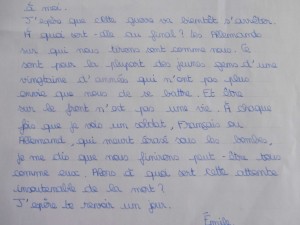 à moi.
J'espère que cette guerre va bientôt s'arrêter.
A quoi sert-elle au final ? Les Allemands
sur qui nous tirons sont comme nous. Ce
sont pour la plupart des jeunes gens d'une
vingtaine d'années qui n'ont pas plus
envie que nous de se battre. Et être
sur le front n'est pas une vie. A chaque
fois que je vois un soldat, Français ou
Allemand, qui meurt écrasé sous les bombes,
je me dis que nous finirons peut-être tous
comme eux. Alors à quoi sert cette attente
insoutenable de la mort ?
J'espère te revoir un jour.
Émile